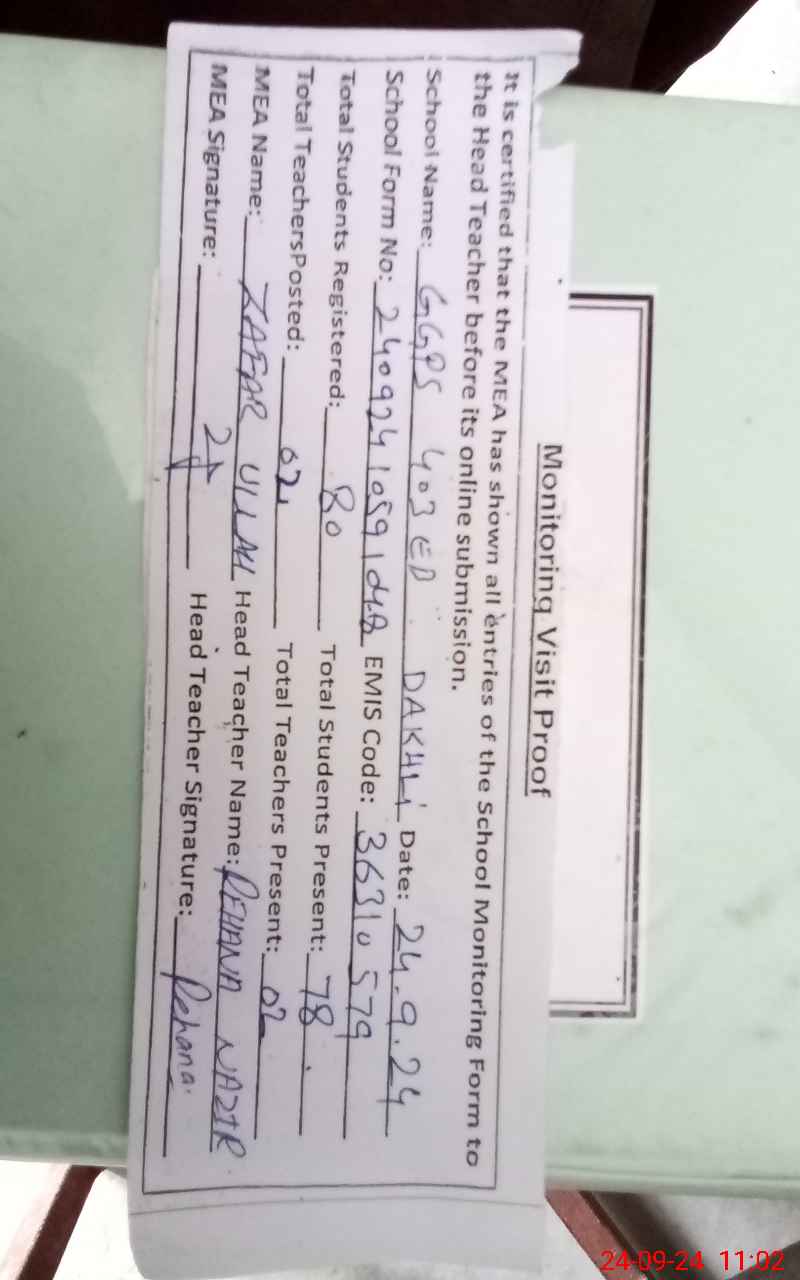 Monitoring Visit Proof
It is certified that the MEA has shown all entries of the School Monitoring Form to
the Head Teacher before its online submission.
School Name: GGPS 403 EB DAKHLI Date: 24.9.24
School Form No: 240924105910 EMIS Code: 36310579
Total Students Registered: 80 Total Students Present: 78
Total TeachersPosted: 02 Total Teachers Present: 02
MEA Name: ZAFAR ULLAH Head Teacher Name: REHANA NAZIR
MEA Signature: Head Teacher Signature: Rehana
24-09-24 11:02